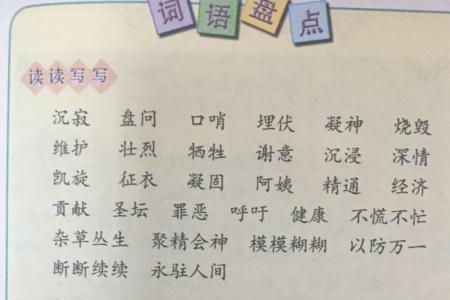 词语盘点
读读写写
沉寂 盘问 口哨 埋伏 凝神 烧毁
维护 壮烈 牺牲 谢意 沉浸 深情
凯旋 征衣 凝固 阿姨 精通 经济
贡献 圣坛 罪恶 呼吁 健康 不慌不忙
杂草丛生 聚精会神 模模糊糊 以防万一
断断续续 永驻人间